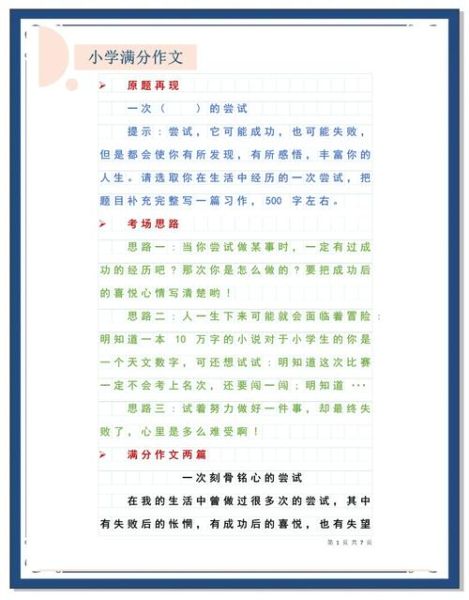 小学满分作文
原题再现
一次（　　）的尝试
提示：尝试，它可能成功，也可能失败，
但是都会使你有所发现，有所感悟，丰富你的
人生。请选取你在生活中经历的一次尝试，把
题目补充完整写一篇习作，500 字左右。
考场思路
思路一：当你尝试做某事时，一定有过成
功的经历吧？那次你是怎么做的？要把成功后
的喜悦心情写清楚哟！
思路二：人一生下来可能就会面临着冒险：
明知道一本 10 万字的小说对于小学生的你是
一个天文数字，可还想试试；明知道这次比赛
一定不会考上名次，还要闯一闯；明知道…
思路三：试着努力做好一件事，却最终失
败了，心里是多么难受啊！
满分作文两篇
一次刻骨铭心的尝试
在我的生活中曾做过很多次的尝试，其中
有失败后的怅惘，有成功后的喜悦，也有失望
第 1 页 共 7 页